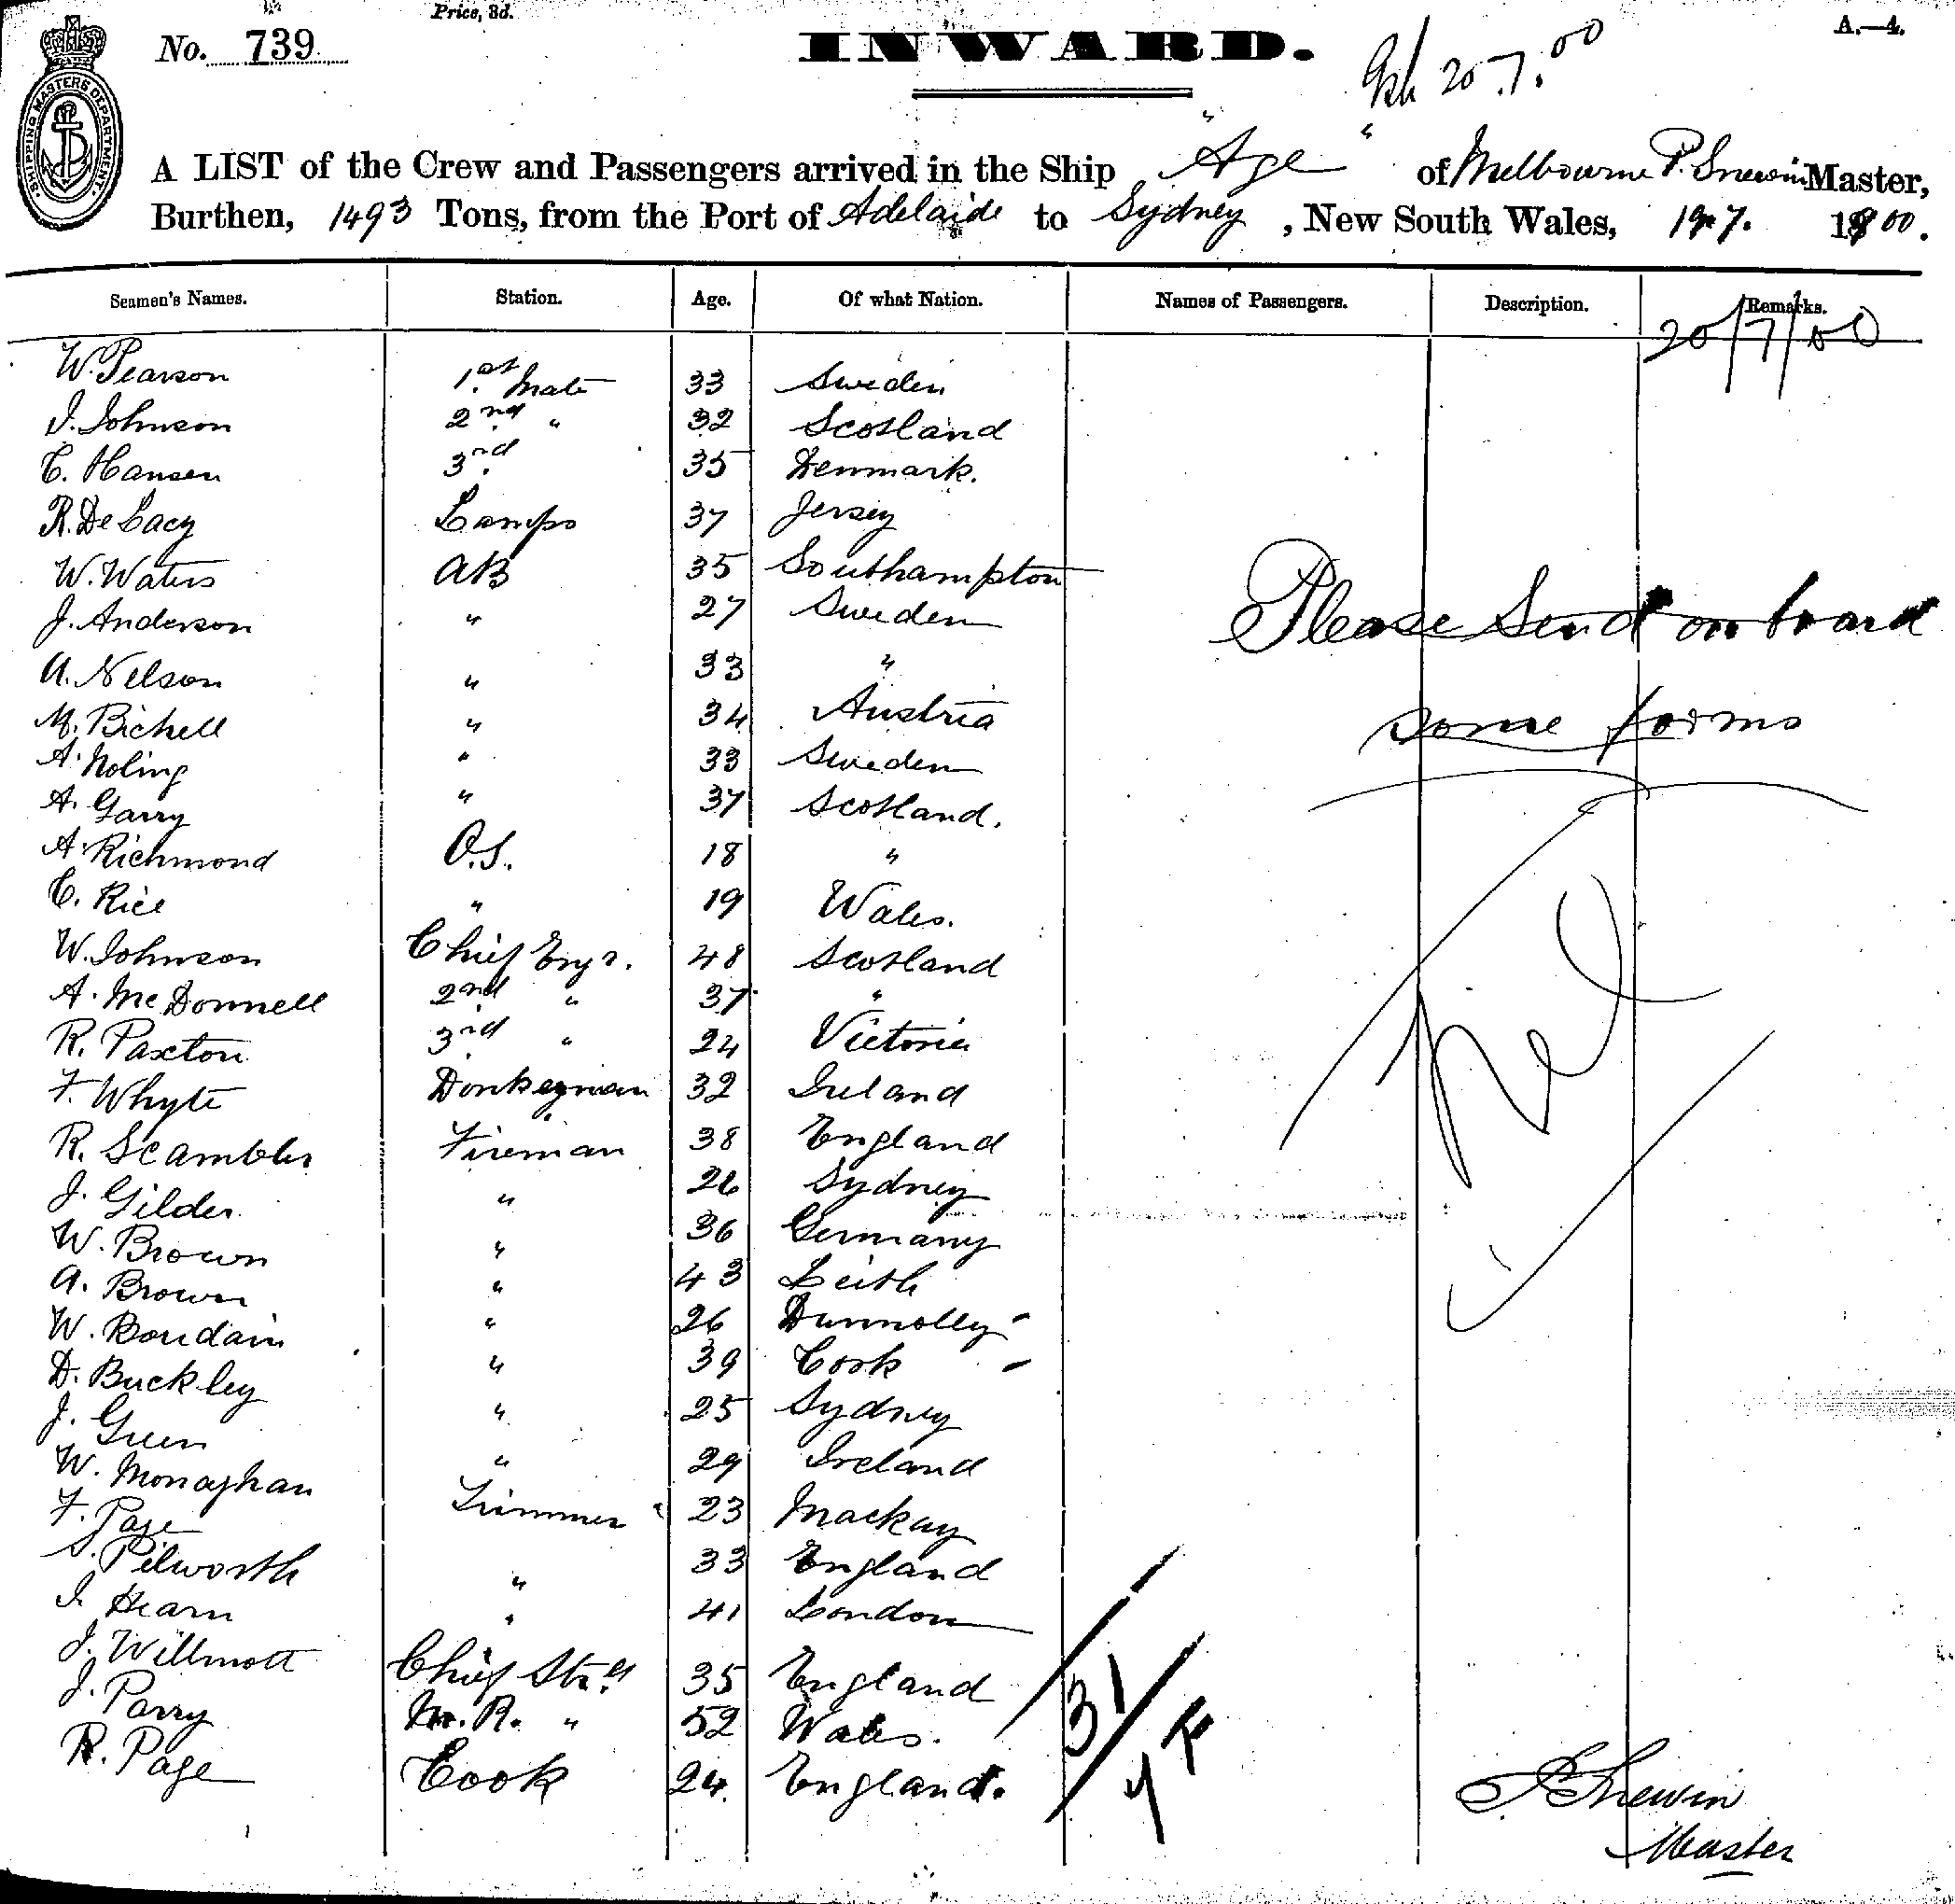 Price, 3d.
No. 739
INWARD.
A.—4.
20.7.00
SHIPPING MASTERS DEPARTMENT.
A LIST of the Crew and Passengers arrived in the Ship "Age" of Melbourne P. Snewin Master,
Burthen, 1493 Tons, from the Port of Adelaide to Sydney, New South Wales, 19.7. 1900.
Seamen's Names. Station. Age. Of what Nation. Names of Passengers. Description. Remarks.
20/7/00
W. Pearson 1.st Mate 33 Sweden
J. Johnson 2nd " 32 Scotland
C. Hansen 3rd. 35 Denmark.
R. De Lacy Lamps 37 Jersey
W. Waters AB 35 Southampton
J. Anderson " 27 Sweden
A. Nelson " 33 "
M. Bichell " 34 Austria
A. Noling " 33 Sweden
A. Garry " 37 Scotland.
A. Richmond O.S. 18 "
C. Rice " 19 Wales.
W. Johnson Chief Engr. 48 Scotland
A. McDonnell 2nd " 37 "
R. Paxton 3rd " 24 Victoria
F. Whyte Donkeyman 32 Ireland
R. Scambler Fireman 38 England
J. Gilder " 26 Sydney
W. Brown " 36 Germany
A. Brown " 43 Leith
W. Bourdain " 26 Dunnolly
D. Buckley " 39 Cork
J. Green " 25 Sydney
W. Monaghan " 29 Ireland
F. Page Trimmer 23 Mackay
S. Pilworth " 33 England
J. Hearn " 41 London
J. Willmott Chief Strd 35 England
J. Parry M.R. " 52 Wales.
R. Page Cook 24 England.
Please Send on board
some forms
31
P Snewin
Master